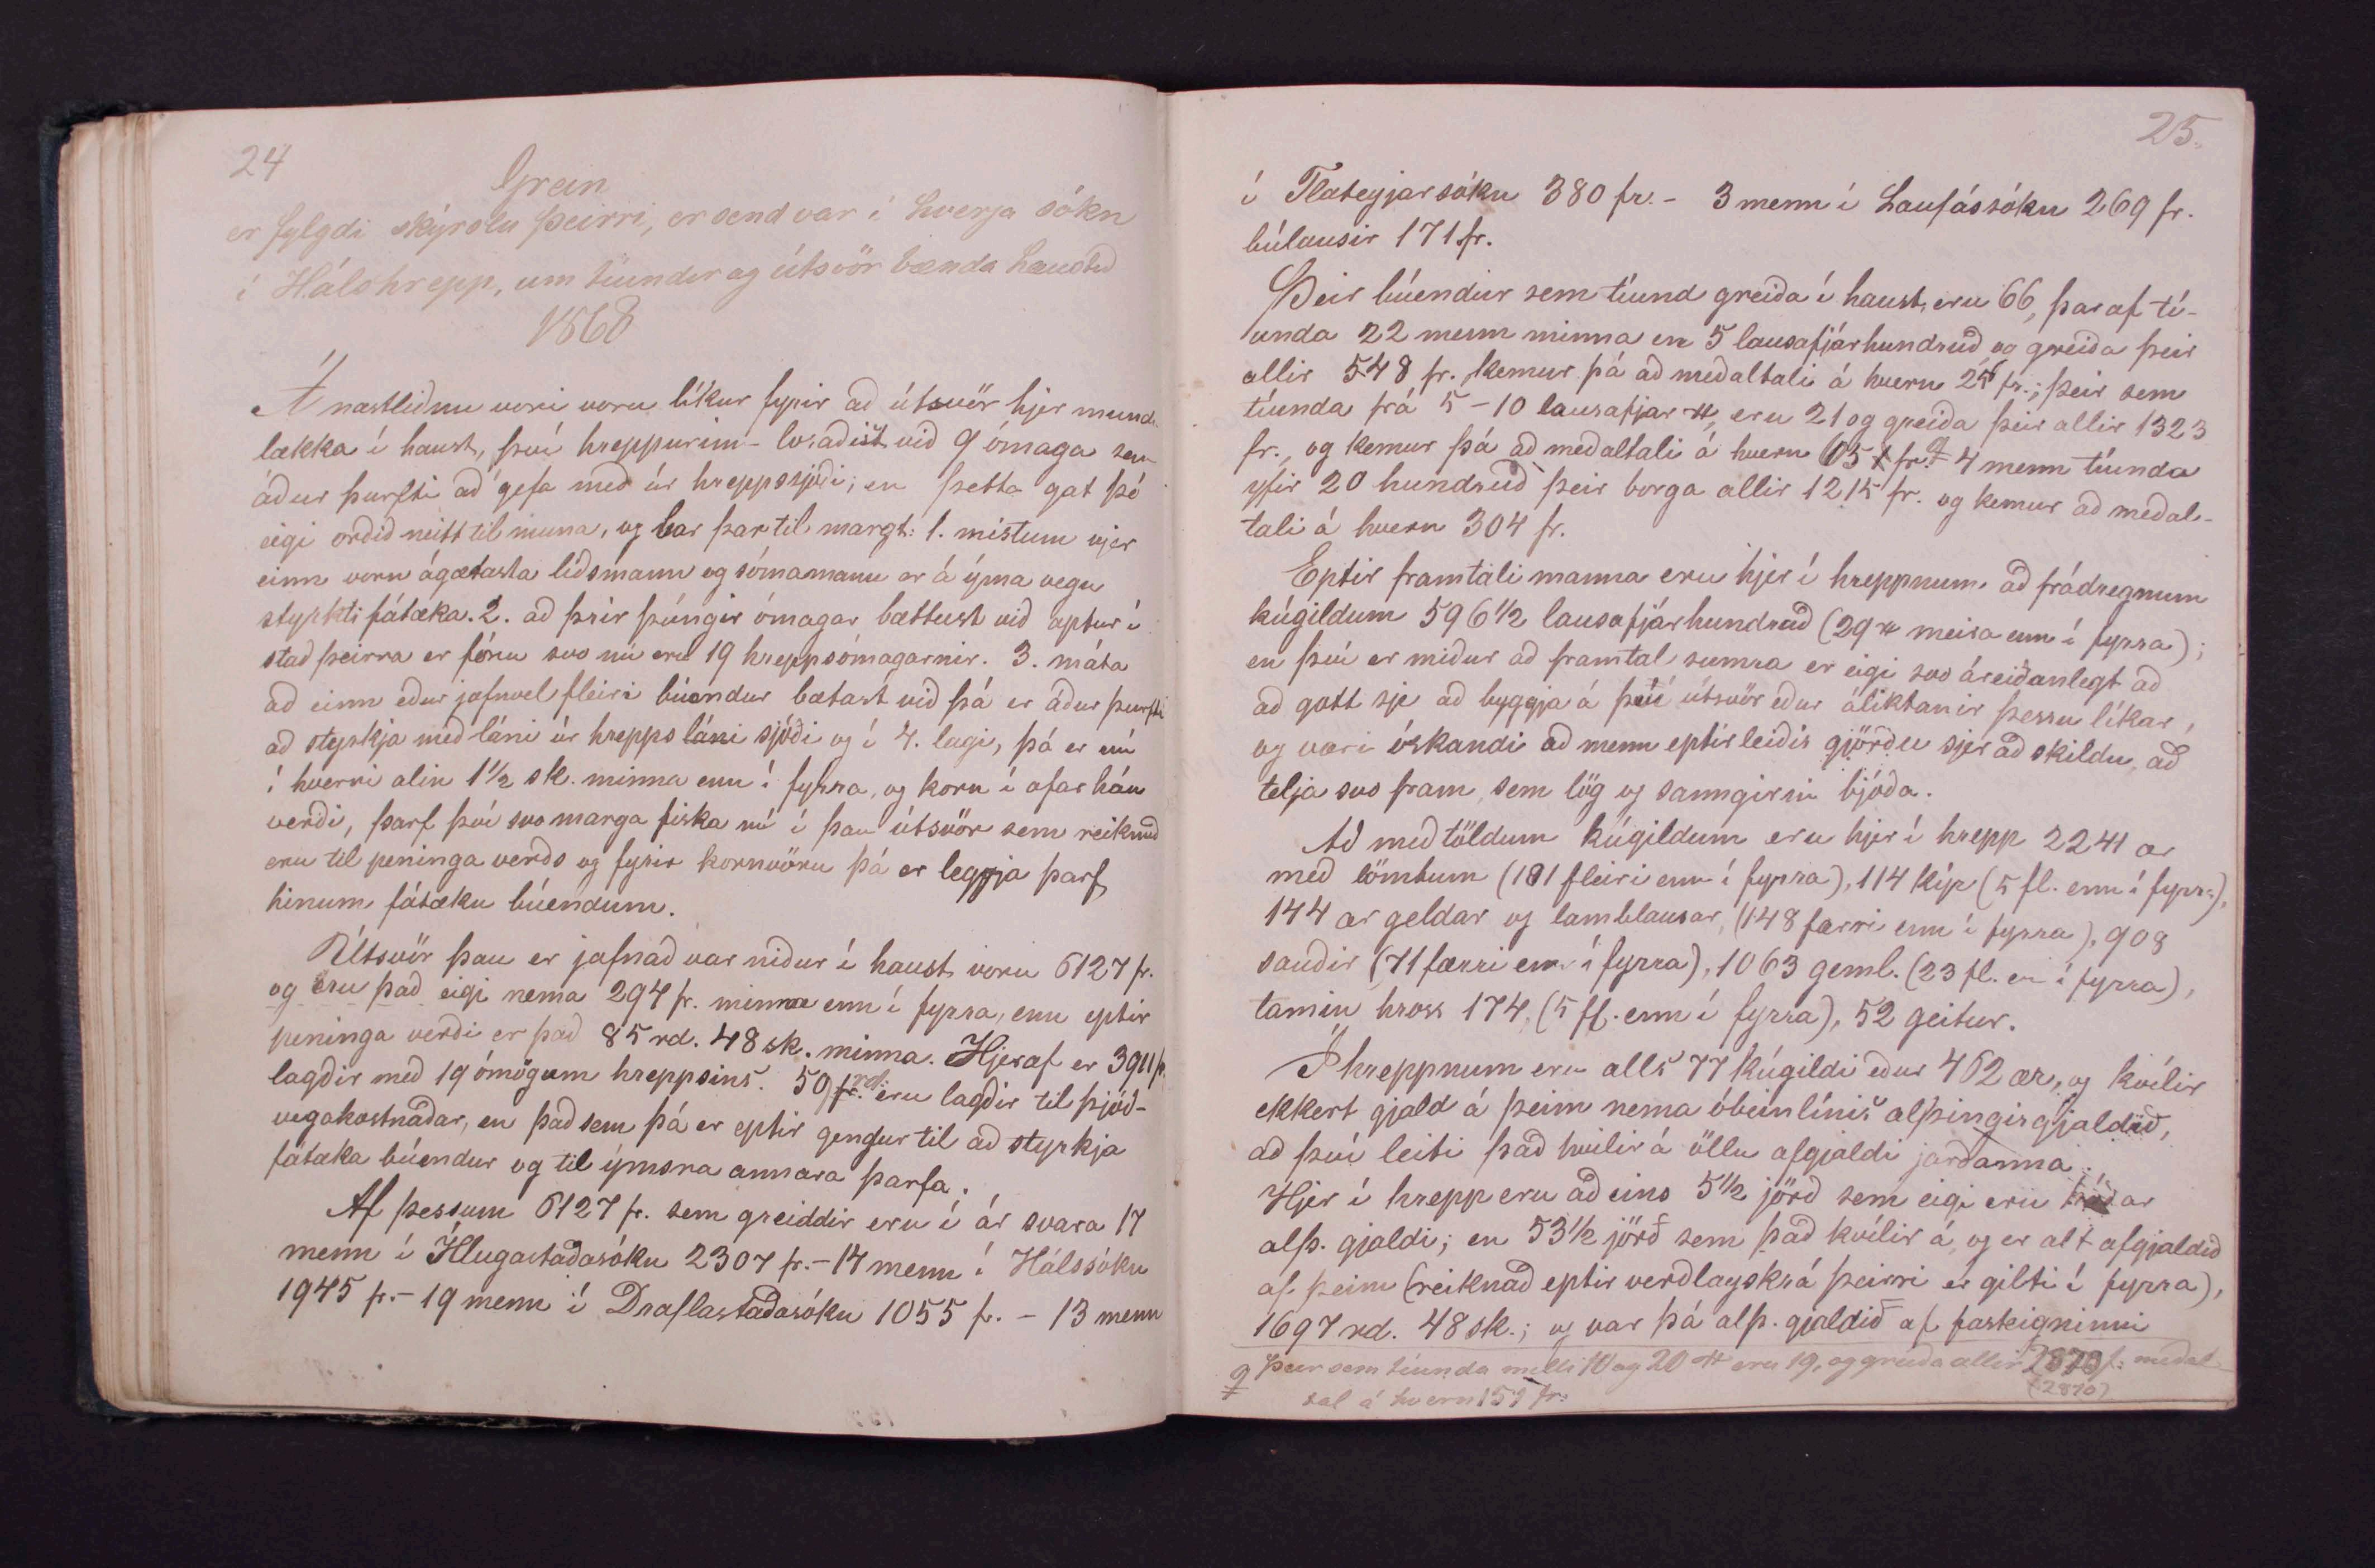 24
Grein
er fylgdi skýrslu þeirri, er send var í hverja sókn
í Hálshrepp, um tíundir og útsvör bænda haustið
1868
Á næstliðnu vori voru líkur fyrir að útsvör hjer mundi
lækka í haust, því hreppurinn losaðist við 9 ómaga sem
áður þurfti að gefa með úr hreppssjóði; en þetta gat þó
eigi orðið neitt til muna, og bar þar til margt: 1. mistum vjer
einn vorn ágætasta liðsmann og sómamann er á ýmsa vegu
styrkti fátæka. 2. að þrír þúngir ómagar bættust við aptur í
stað þeirra er fóru svo nú eru 19 hreppsómagarnir. 3. máta
að einn eður jafnvel fleiri búendur bætast við þá er áður þurfti
að styrkja með láni úr hrepps láni sjóði og í 4. lagi, þá er nú
í hverri alin 1 1/2 sk. minna enn í fyrra, og korn í afar háu
verði, þarf því svo marga fiska nú í þau útsvör sem reiknuð
eru til peninga verðs og fyrir kornvöru þá er leggja þarf
hinum fátæku búendum.
Útsvör þau er jafnað var niður í haust voru 6127 fr.
og eru það eigi nema 294 fr. minna enn í fyrra, enn eptir
peninga verði er það 85 rd. 48 sk. minna. Hjeraf er 3911 fr.
lagðir með 19 ómögum hreppsins. 50 fr. rd. eru lagðir til þjóð-
vegakostnaðar, en það sem þá er eptir gengur til að styrkja
fátæka búendur og til ýmsra annara þarfa.
Af þessum 6127 fr. sem greiddir eru í ár svara 17
menn í Illugastaðasókn 2307 fr. - 14 menn í Hálssókn
1945 fr. - 19 menn í Draflastaðasókn 1055 fr. - 13 menn
25.
í Flateyjarsókn 380 fr. - 3 menn í Laufássókn 269 fr.
búlausir 171 fr.
Þeir búendur sem tíund greiða í haust, eru 66, þar af tí-
unda 22 menn minna en 5 lausafjárhundruð og greiða þeir
allir 548 fr. kemur þá að meðaltali á hvern 25 fr.; þeir sem
tíunda frá 5-10 lausafjar #, eru 21 og greiða þeir allir 1323
fr., og kemur þá að meðaltali á hvern 65 fr. 4 menn tíunda
yfir 20 hundruð þeir borga allir 1215 fr. og kemur að meðal-
tali á hvern 304 fr.
Eptir framtali manna eru hjer í hreppnum að frádregnum
kúgildum 596 1/2 lausafjárhundruð (29 # meira enn í fyrra);
en því er miður að framtal sumra er eigi svo áreiðanlegt að
að gott sje að byggja á því útsvör eður áliktanir þessu líkar,
og væri óskandi að menn eptirleiðis gjörðu sjer að skildu, að
telja svo fram, sem lög og sanngirni bjóða.
Að með töldum kúgildum eru hjer í hrepp 2241 ær
með lömbum (181 fleiri enn í fyrra), 114 kýr (5 fl. enn í fyrra),
144 ær geldar og lamblausar, (148 færri enn í fyrra), 908
sauðir (71 færri enn í fyrra), 1063 geml. (23 fl. en í fyrra),
tamin hross 174, (5 fl. enn í fyrra), 52 geitur.
Í hreppnum eru alls 77 kúgildi eður 462 ær, og kvílir
ekkert gjald á þeim nema óbeinlínis alþingisgjaldið,
að því leiti það hvílir á öllu afgjaldi jarðanna.
Hjer í hrepp eru að eins 5 1/2 jörð sem eigi eru háðar
alþ. gjaldi; en 53 1/2 jörð sem það kvílir á, og er alt afgjaldið
af þeim (reiknað eptir verðlagskrá þeirri er gilti í fyrra),
1697 rd. 48 sk.; og var þá alþ. gjaldið af fasteigninni
þeir sem tíunda milli 10 og 20 # eru 19, og greiða allir f: meðal-
(2870)
tal á hvern 151 fr: